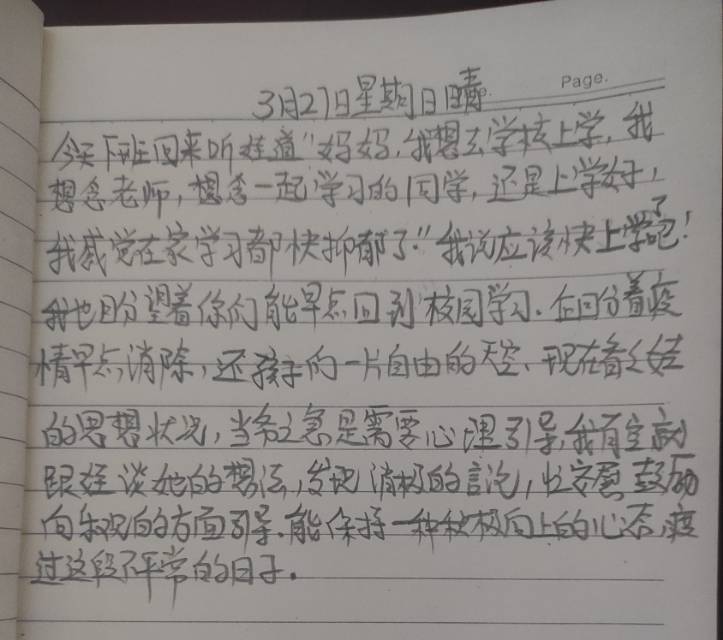 Page.
3月27日星期日晴
今天下班回来听娃道"妈妈,我想去学校上学,我
想念老师,想念一起学习的同学,还是上学好,
我感觉在家学习都快抑郁了."我说应该快上学了吧!
我也盼望着你们能早点回到校园学习.但盼着疫
情早点消除,还孩子的一片自由的天空、现在看之娃
的思想状况,当务之急是需要心理引导,我有空就
跟娃谈她的想法,发现消极的言论,安慰鼓励
向乐观的方面引导.能保持一种积极向上的心态度
过这段不平常的日子.